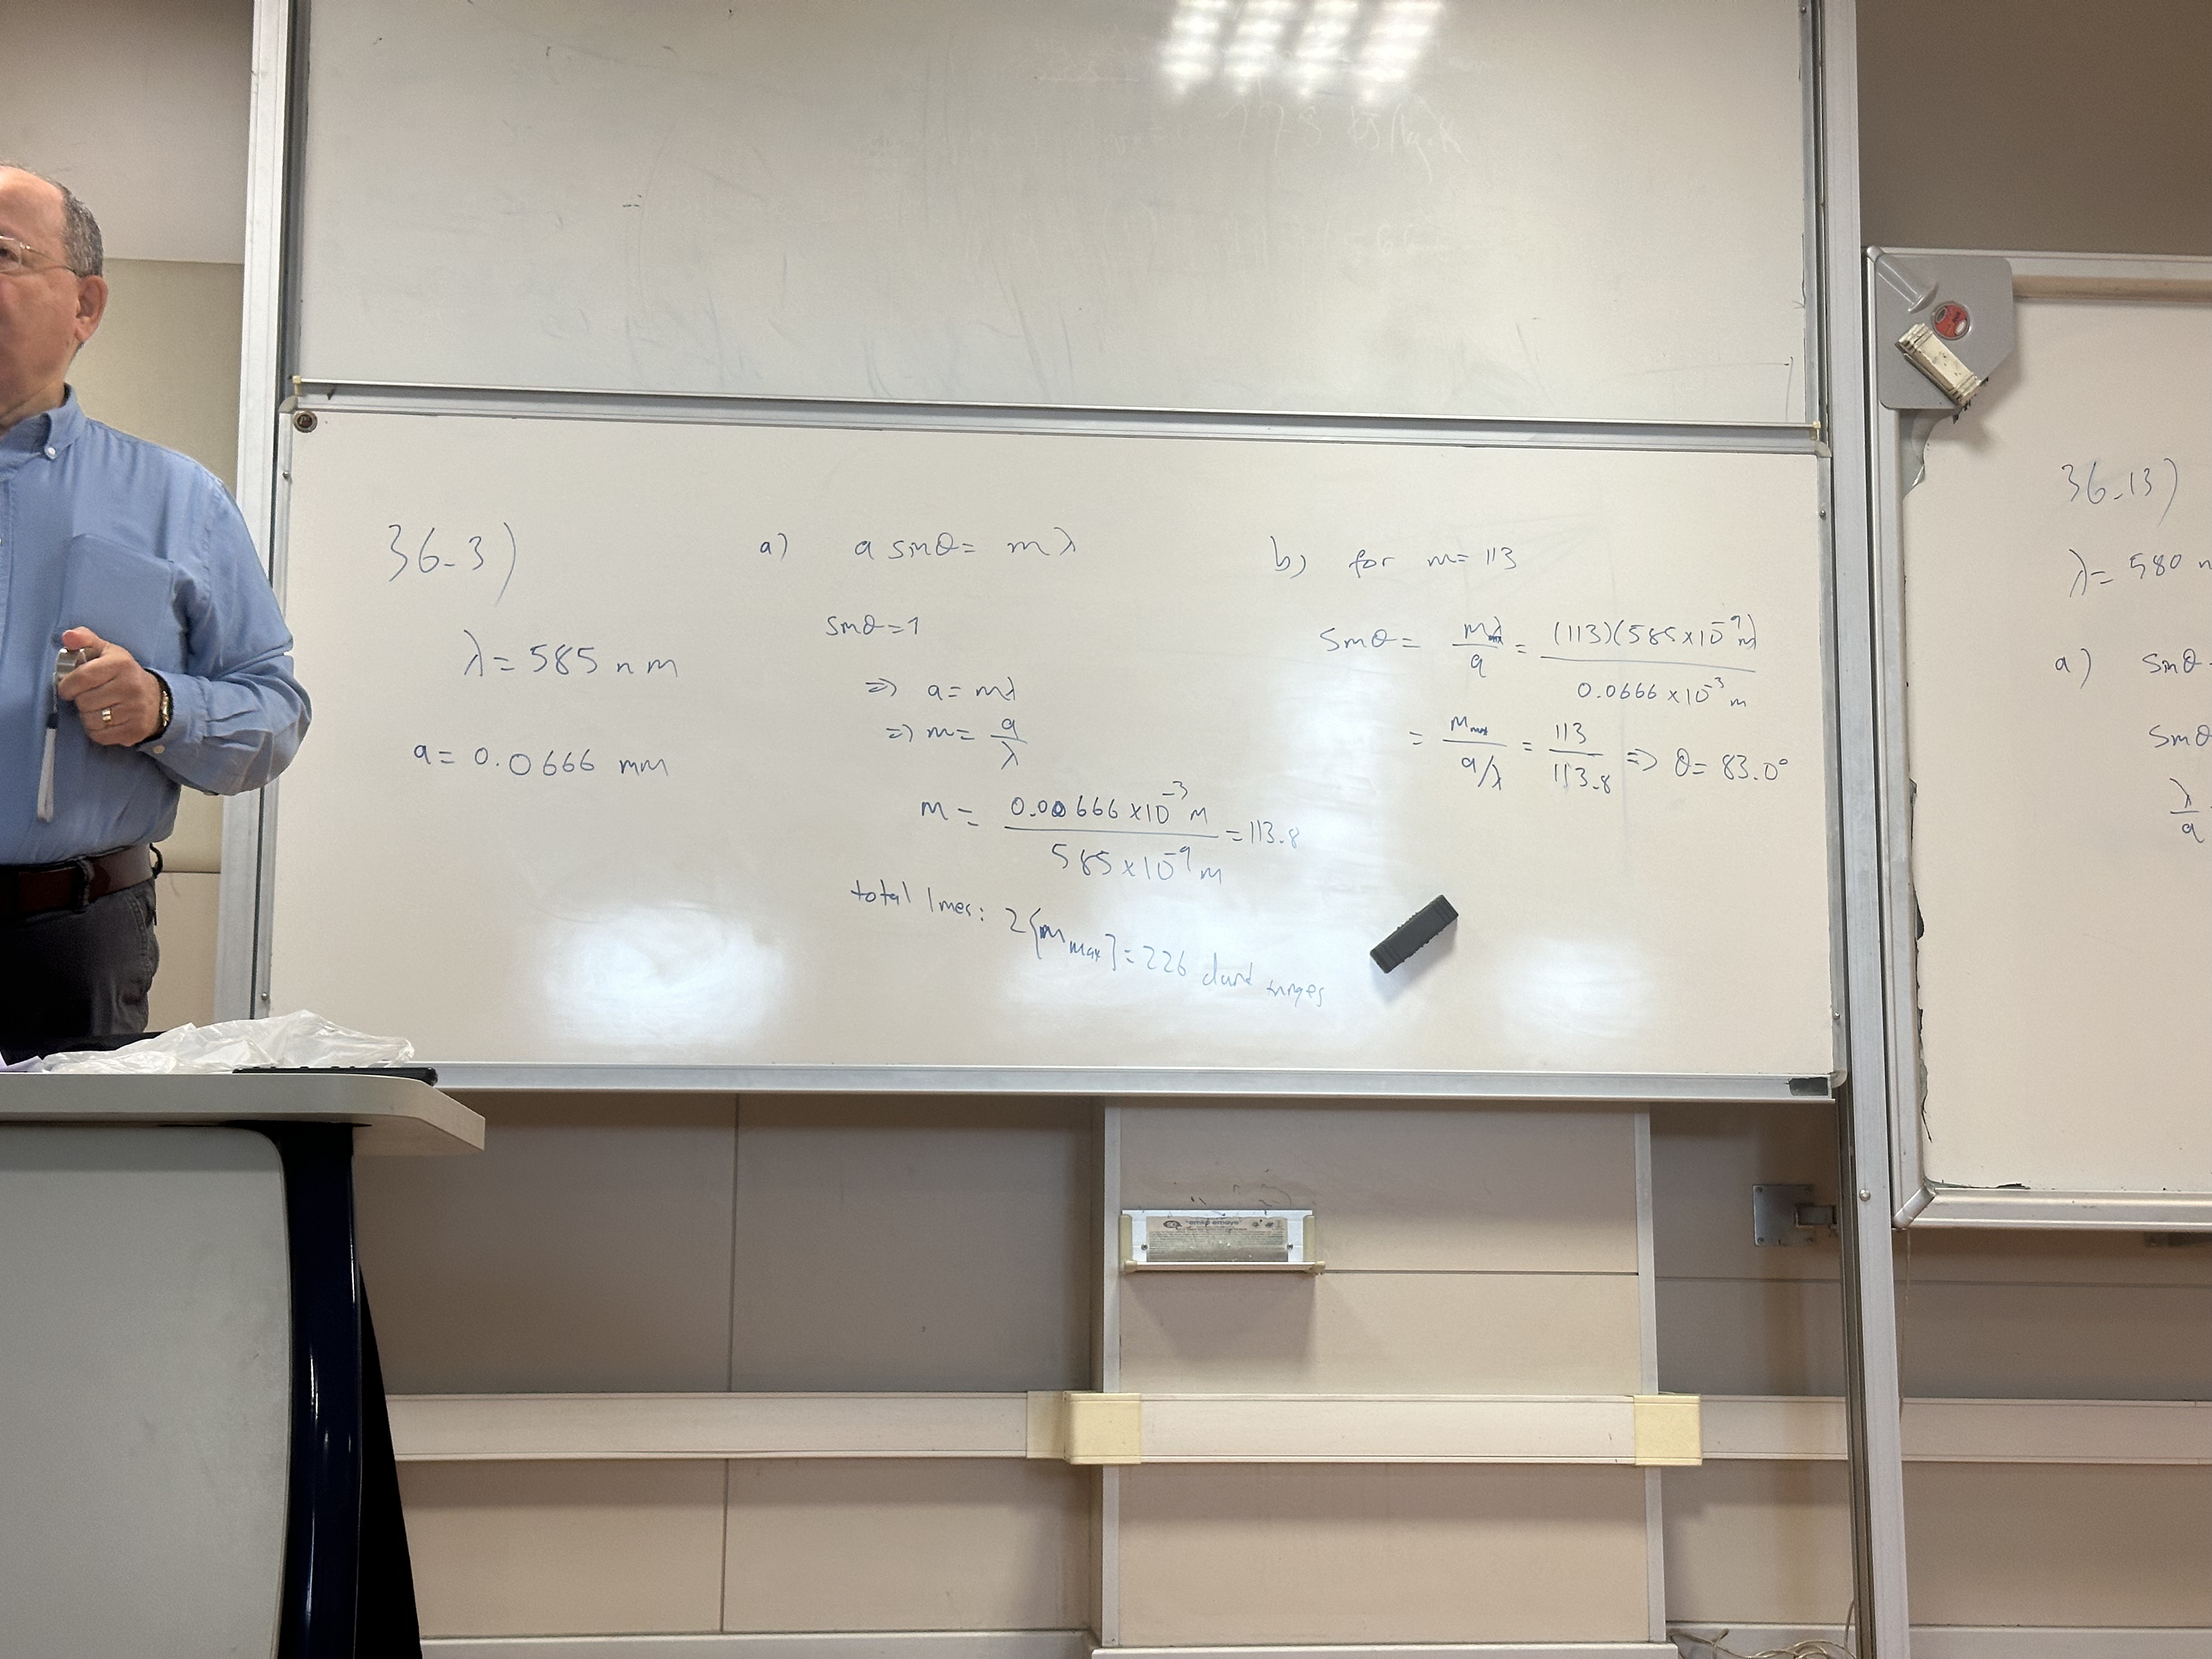 36-3)
λ = 585 nm
a = 0.0666 mm
a) a sinθ = mλ
sinθ = 1
=> a = mλ
=> m = a/λ
m = 0.00666 x 10^-3 m / 585 x 10^-9 m = 113.8
total lines: 2[m max] = 226 dark fringes
b) for m = 113
sinθ = mλ/a = (113)(585 x 10^-9 m) / 0.0666 x 10^-3 m
= m max / a/λ = 113/113.8 => θ = 83.0°
36-13)
λ = 580 n
a) sinθ
sinθ
λ/a